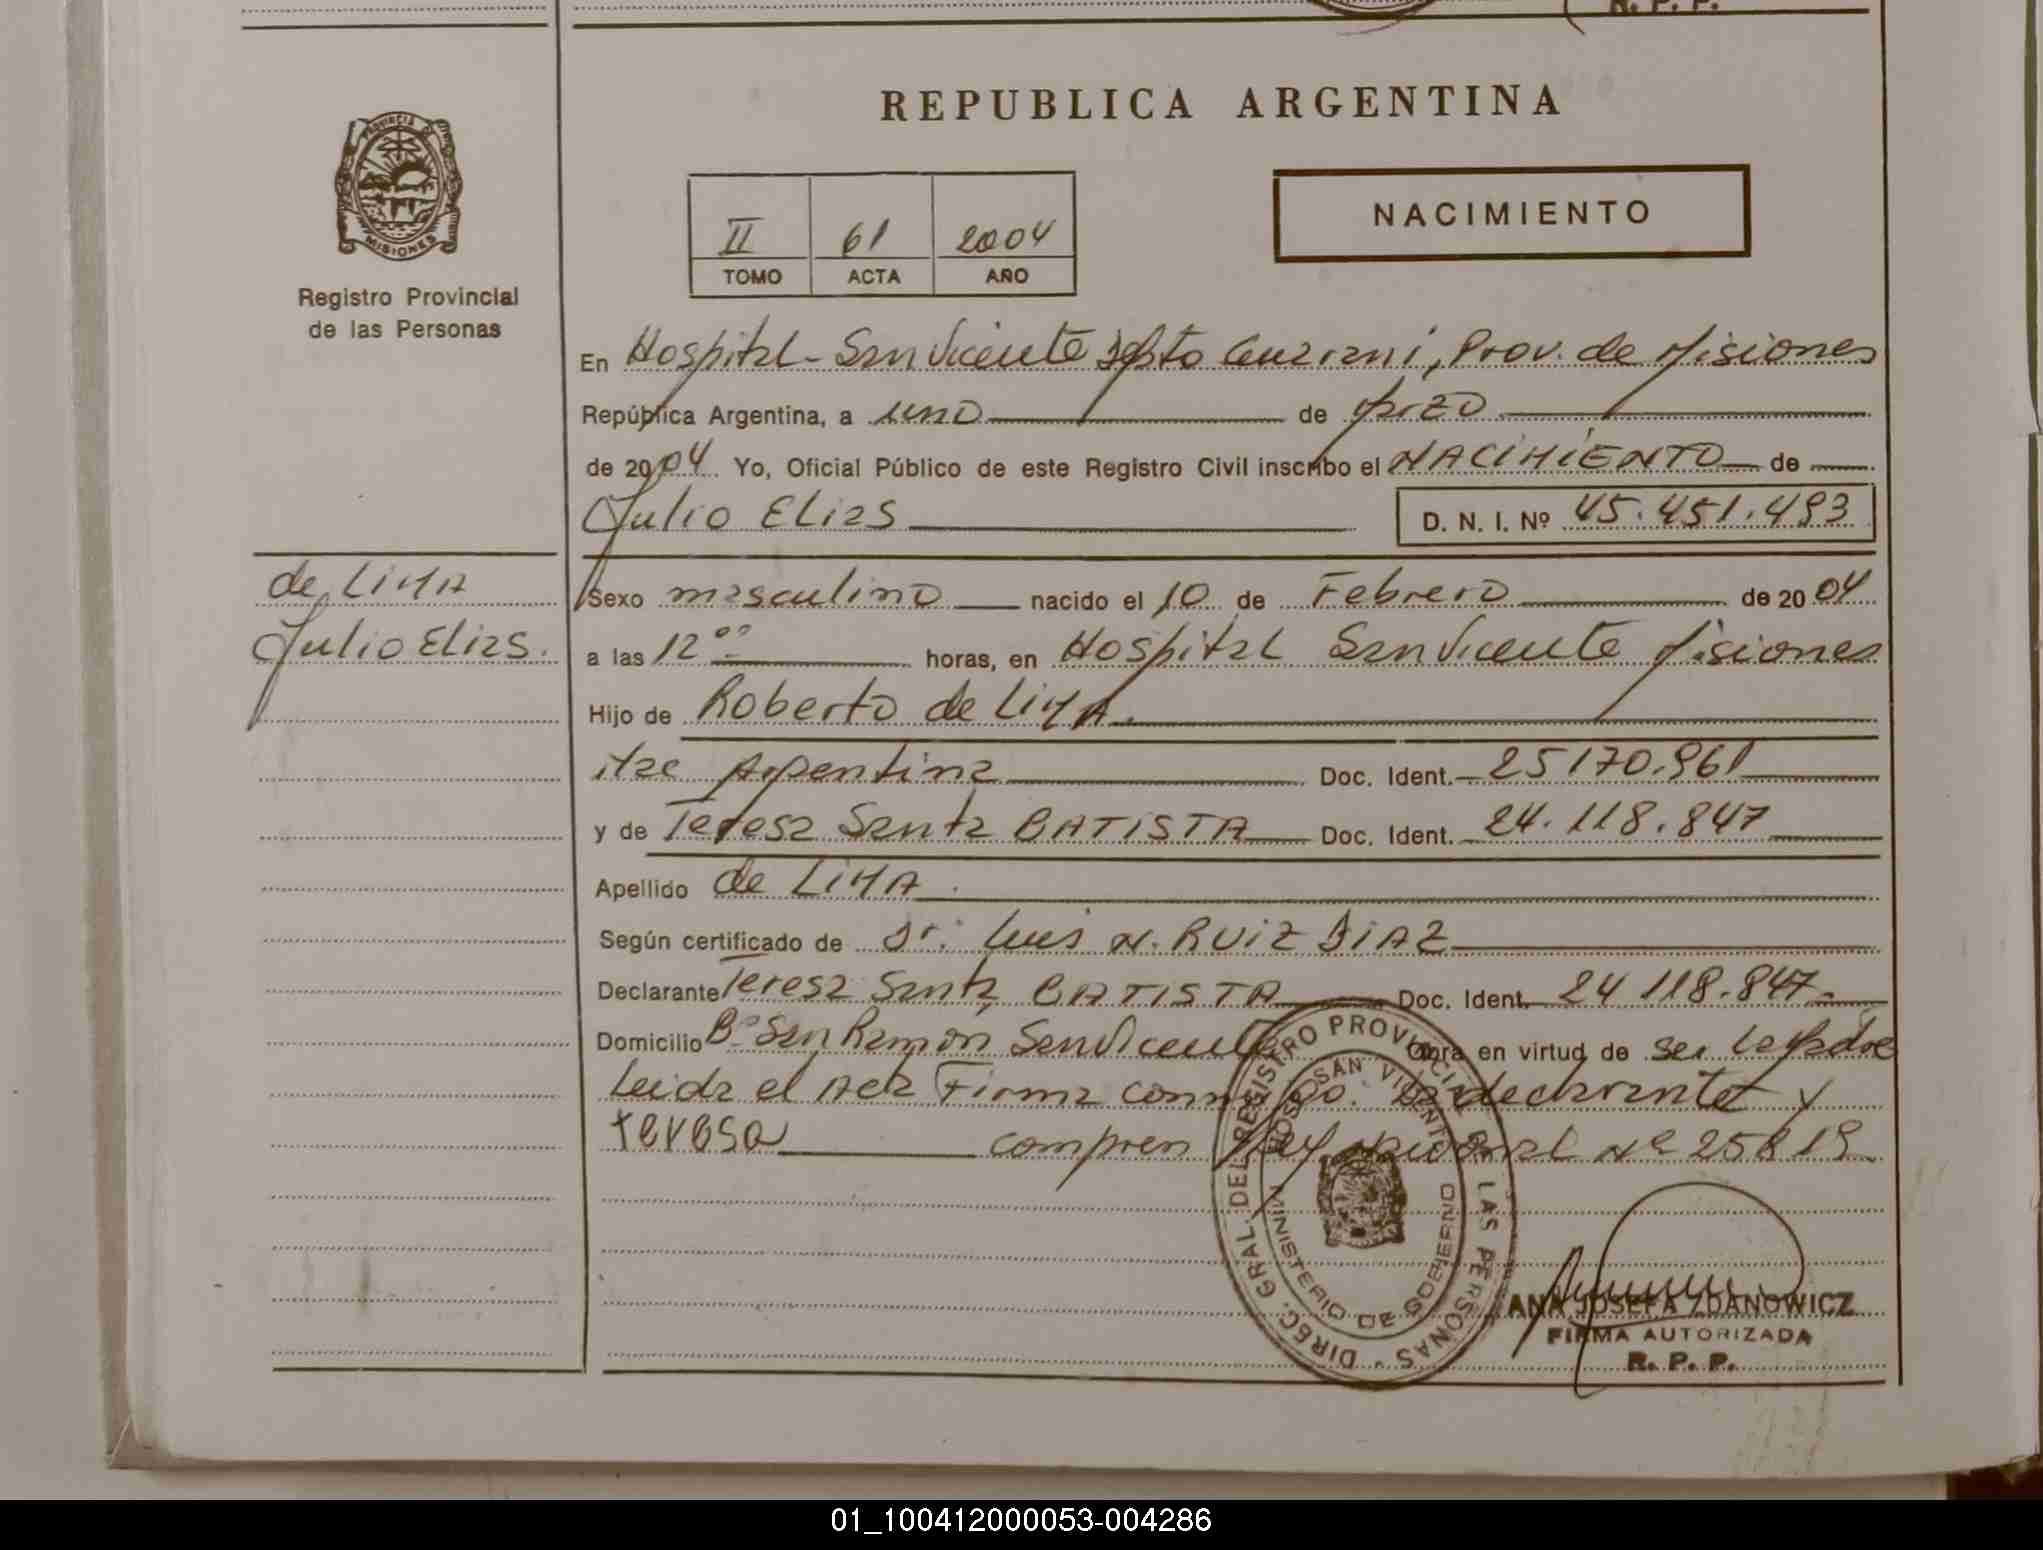 R. P. P.
REPUBLICA ARGENTINA
PROVINCIA DE
MISIONES
Registro Provincial
de las Personas
NACIMIENTO
II 61 2004
TOMO ACTA AÑO
En Hospital - San Vicente Dpto Guarani, Prov. de Misiones
República Argentina, a uno de Marzo
de 2004 Yo, Oficial Público de este Registro Civil inscribo el NACIMIENTO de
Julio Elias D. N. I. Nº 45.451.493
de LIMA
Julio Elias.
Sexo masculino nacido el 10 de Febrero de 2004
a las 12 ºº horas, en Hospital San Vicente Misiones
Hijo de Roberto de LIMA.
Argentina Doc. Ident. 25170.961
y de Teresa Santa BATISTA Doc. Ident. 24.118.847
Apellido de LIMA.
Según certificado de Dr. Luis N. RUIZ DIAZ
Declarante Teresa Santa BATISTA Doc. Ident. 24 118.847
Domicilio Bº San Ramon San Vicente Obra en virtud de ser la Madre
Leida el Acta Firma conmigo. La declarante y
teresa compren Ley Nacional Nº 25819
DIREC. GRAL. DEL REGISTRO PROVINCIAL DE LAS PERSONAS
HOSP. SAN VICENTE
MINISTERIO DE GOBIERNO
ANA JOSEFA ZDANOWICZ
FIRMA AUTORIZADA
R. P. P.
01_100412000053-004286